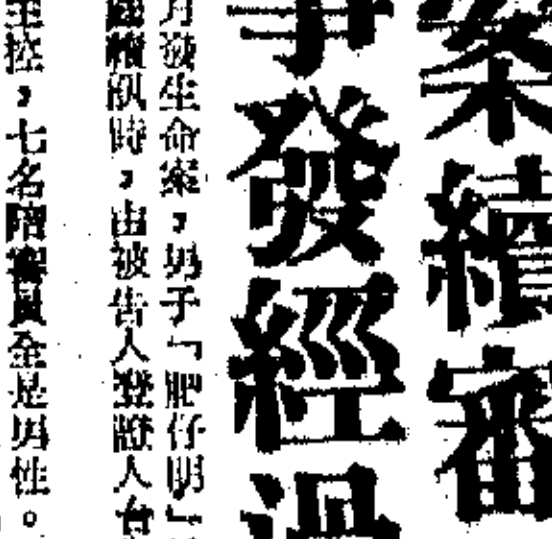 案續審
事發經過
月發生命案，男子「肥仔明」
時，由被告人登證人台
控，七名陪審員全是男性。